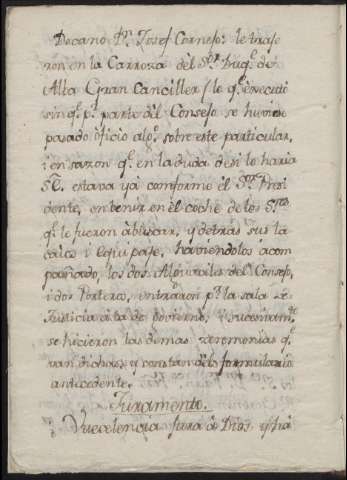 Decano Dn. Josef Cornejo: le traje
ron en la Carroza del Sr. Duqe. de
Alba Gran Canciller (le qe. executó
sin qe. pr. parte del Consejo se huviese
pasado oficio algo. sobre este particular,
i en sazon qe. en la duda de si lo haria
SE. estava yá conforme el Sr. Presi
dente, en venir en el coche de los Sres.
qe. le fueron à buscar, y detras sus la
cayos i equipaje. haviendolos acom
pañado, los dos Alguaciles del Consejo,
i dos Porteros, entraron pr. la sala de
Justicia à la de Govierno, y sucesivamte.
se hicieron las demas zeremonias qe.
van dichas, y constan del formulario
antecedente.
Juramento.
Vuecelencia jura à Dios, esta